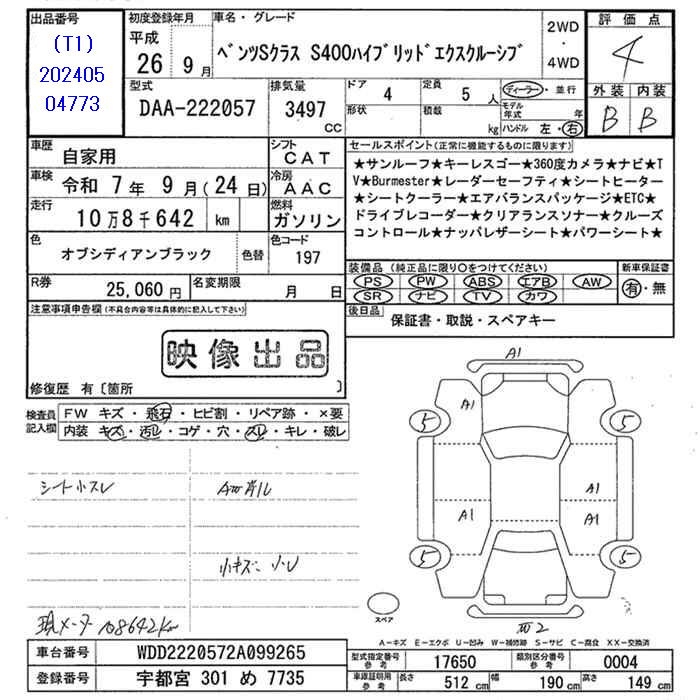 出品番号
(T1)
202405
04773
初度登録年月
平成
26 9 月
車名・グレード
ベンツSクラス S400ハイブリッドエクスクルーシブ
2WD
・
4WD
評価点
4
外装 内装
B B
型式
DAA-222057
排気量
3497
CC
ドア 4
形状
定員 5 人
積載 kg
ディーラー・並行
モデル年式 年
ハンドル 左・右
車歴
自家用
シフト
CAT
車検
令和 7 年 9 月 (24 日)
冷房
AAC
走行
10万8千642 km
燃料
ガソリン
色
オブシディアンブラック
色替
色コード
197
R券
25,060 円
名変期限
月 日
セールスポイント(正常に機能するものに限ります)
★サンルーフ★キーレスゴー★360度カメラ★ナビ★T
V★Burmester★レーダーセーフティ★シートヒーター
★シートクーラー★エアバランスパッケージ★ETC★
ドライブレコーダー★クリアランスソナー★クルーズ
コントロール★ナッパレザーシート★パワーシート★
装備品(純正品に限り○をつけてください)
PS PW ABS エアB AW
SR ナビ TV カワ
新車保証書
有・無
後日品
保証書・取説・スペアキー
注意事項申告欄(不具合内容等は具体的に記入して下さい)
映像出品
修復歴 有〔箇所 〕
検査員
記入欄
FW キズ・飛石・ヒビ割・リペア跡・×要
内装 キズ・汚レ・コゲ・穴・スレ・キレ・破レ
シート小スレ
小キズ 小
現メーター108642km
A1
A1
5
5
A1
A1
A1
5
5
スペア
2
A-キズ E-エクボ U-凹み W-補修跡 S-サビ C-腐食 XX-交換済
車台番号 WDD2220572A099265
登録番号 宇都宮 301 め 7735
型式指定番号
参考
17650
類別区分番号
参考
0004
車庫証明用
参考
長さ 512 cm 幅 190 cm 高さ 149 cm